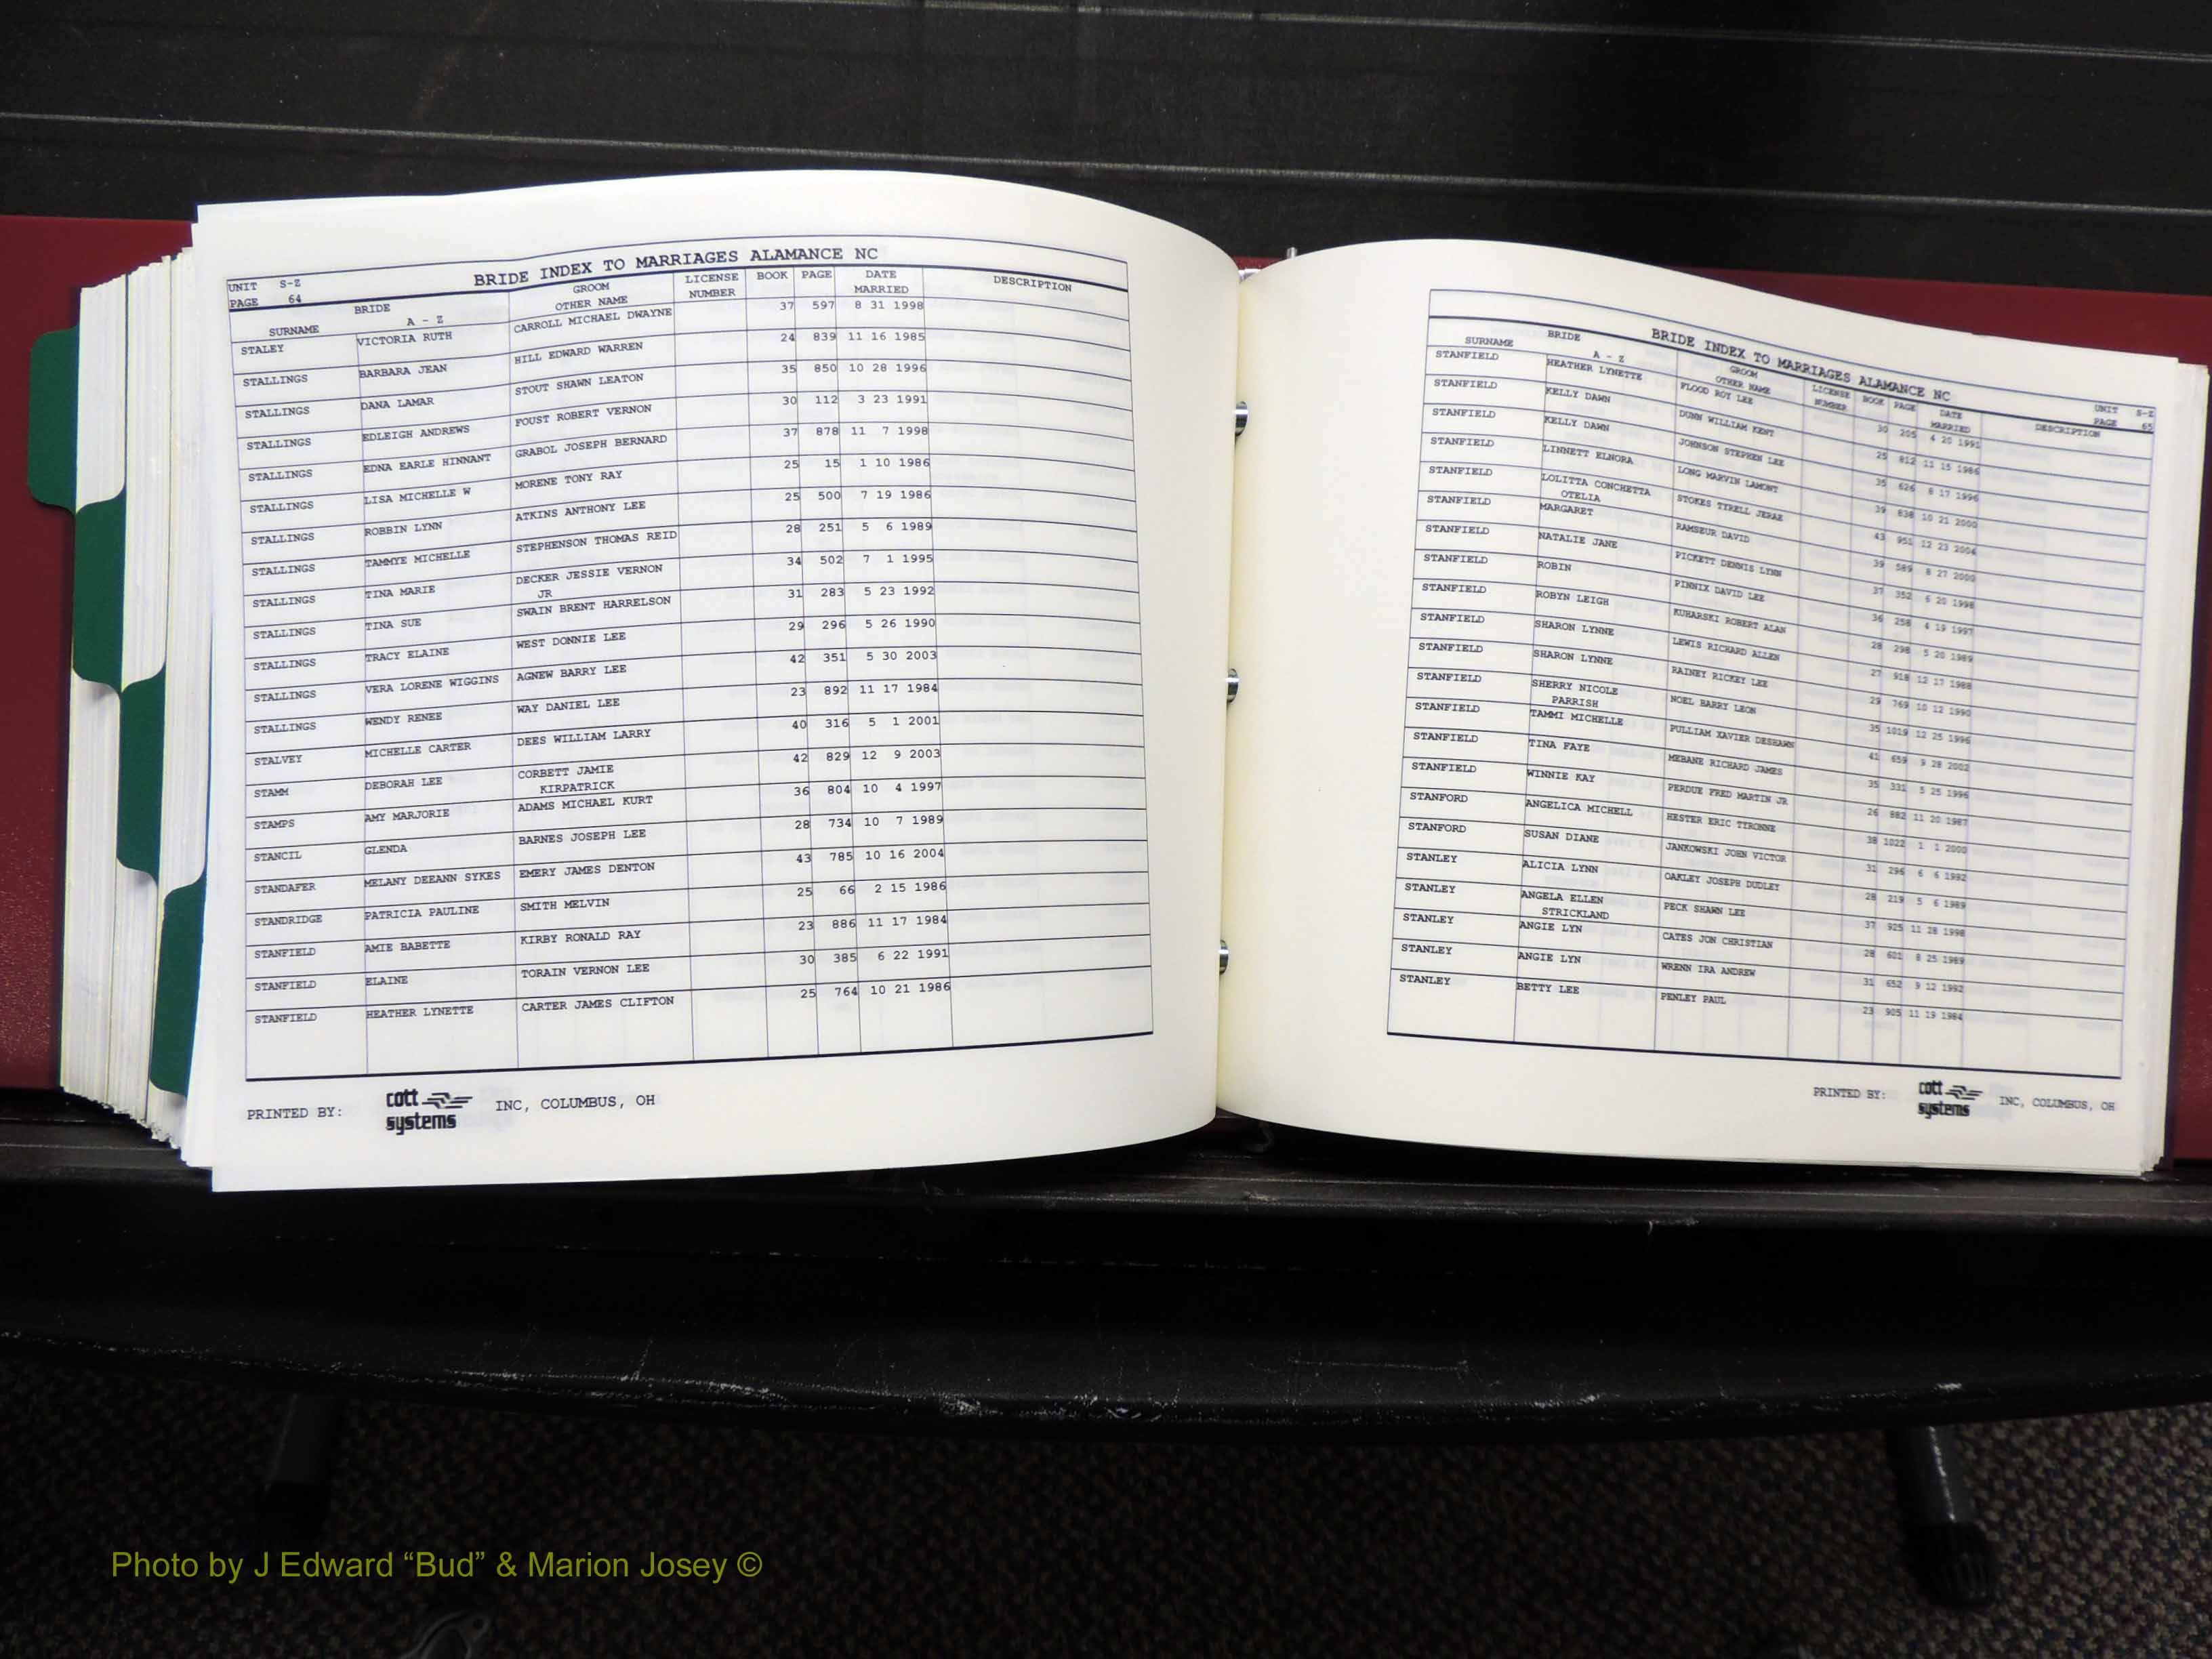 BRIDE INDEX TO MARRIAGES ALAMANCE NC
UNIT S-Z
PAGE 64
BRIDE GROOM LICENSE BOOK PAGE DATE DESCRIPTION
SURNAME A - Z OTHER NAME NUMBER MARRIED
STALEY VICTORIA RUTH CARROLL MICHAEL DWAYNE 37 597 8 31 1998
STALLINGS BARBARA JEAN HILL EDWARD WARREN 24 839 11 16 1985
STALLINGS DANA LAMAR STOUT SHAWN LEATON 35 850 10 28 1996
STALLINGS EDLEIGH ANDREWS FOUST ROBERT VERNON 30 112 3 23 1991
STALLINGS EDNA EARLE HINNANT GRABOL JOSEPH BERNARD 37 878 11 7 1998
STALLINGS LISA MICHELLE W MORENE TONY RAY 25 15 1 10 1986
STALLINGS ROBBIN LYNN ATKINS ANTHONY LEE 25 500 7 19 1986
STALLINGS TAMMYE MICHELLE STEPHENSON THOMAS REID 28 251 5 6 1989
STALLINGS TINA MARIE DECKER JESSIE VERNON 34 502 7 1 1995
JR
STALLINGS TINA SUE SWAIN BRENT HARRELSON 31 283 5 23 1992
STALLINGS TRACY ELAINE WEST DONNIE LEE 29 296 5 26 1990
STALLINGS VERA LORENE WIGGINS AGNEW BARRY LEE 42 351 5 30 2003
STALLINGS WENDY RENEE WAY DANIEL LEE 23 892 11 17 1984
STALVEY MICHELLE CARTER DEES WILLIAM LARRY 40 316 5 1 2001
STAMM DEBORAH LEE CORBETT JAMIE 42 829 12 9 2003
KIRPATRICK
STAMPS AMY MARJORIE ADAMS MICHAEL KURT 36 804 10 4 1997
STANCIL GLENDA BARNES JOSEPH LEE 28 734 10 7 1989
STANDAFER MELANY DEEANN SYKES EMERY JAMES DENTON 43 785 10 16 2004
STANDRIDGE PATRICIA PAULINE SMITH MELVIN 25 66 2 15 1986
STANFIELD AMIE BABETTE KIRBY RONALD RAY 23 886 11 17 1984
STANFIELD ELAINE TORAIN VERNON LEE 30 385 6 22 1991
STANFIELD HEATHER LYNETTE CARTER JAMES CLIFTON 25 764 10 21 1986
PRINTED BY: cott systems INC, COLUMBUS, OH
BRIDE INDEX TO MARRIAGES ALAMANCE NC
UNIT S-Z
PAGE 65
BRIDE GROOM LICENSE BOOK PAGE DATE DESCRIPTION
SURNAME A - Z OTHER NAME NUMBER MARRIED
STANFIELD HEATHER LYNETTE FLOOD ROY LEE 30 205 4 20 1991
STANFIELD KELLY DAWN DUNN WILLIAM KENT 25 812 11 15 1986
STANFIELD KELLY DAWN JOHNSON STEPHEN LEE 35 626 8 17 1996
STANFIELD LINNETT ELNORA LONG MARVIN LAMONT 39 838 10 21 2000
STANFIELD LOLITTA CONCHETTA STOKES TYRELL JERAE 43 951 12 23 2004
OTELIA
STANFIELD MARGARET RAMSEUR DAVID 39 589 8 27 2000
STANFIELD NATALIE JANE PICKETT DENNIS LYNN 37 352 6 20 1998
STANFIELD ROBIN PINNIX DAVID LEE 36 258 4 19 1997
STANFIELD ROBYN LEIGH KUHARSKI ROBERT ALAN 28 298 5 20 1989
STANFIELD SHARON LYNNE LEWIS RICHARD ALLEN 27 918 12 17 1988
STANFIELD SHARON LYNNE RAINEY RICKEY LEE 29 769 10 12 1990
STANFIELD SHERRY NICOLE NOEL BARRY LEON 35 1019 12 25 1996
PARRISH
STANFIELD TAMMI MICHELLE PULLIAM XAVIER DESHAWN 41 659 9 28 2002
STANFIELD TINA FAYE MEBANE RICHARD JAMES 35 331 5 25 1996
STANFIELD WINNIE KAY PERDUE FRED MARTIN JR 26 882 11 20 1987
STANFORD ANGELICA MICHELL HESTER ERIC TYRONNE 38 1022 1 1 2000
STANFORD SUSAN DIANE JANKOWSKI JOHN VICTOR 31 296 6 6 1992
STANLEY ALICIA LYNN OAKLEY JOSEPH DUDLEY 28 219 5 6 1989
STANLEY ANGELA ELLEN PECK SHAWN LEE 37 925 11 28 1998
STRICKLAND
STANLEY ANGIE LYN CATES JON CHRISTIAN 28 601 8 25 1989
STANLEY ANGIE LYN WRENN IRA ANDREW 31 652 9 12 1992
STANLEY BETTY LEE PENLEY PAUL 23 905 11 19 1984
PRINTED BY: cott systems INC, COLUMBUS, OH
Photo by J Edward “Bud” & Marion Josey ©